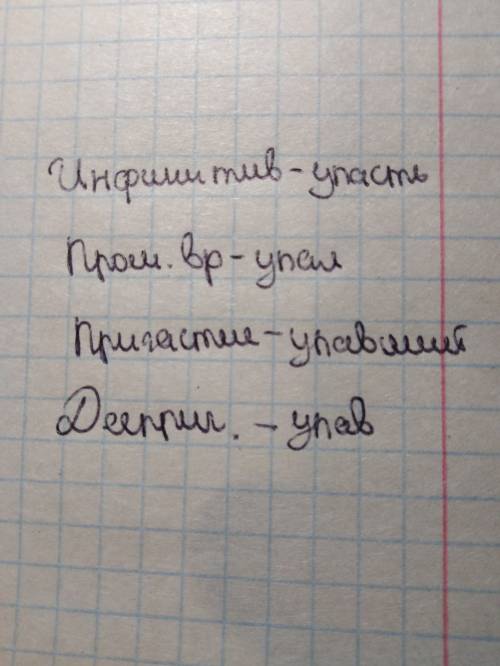 Инфинитив - упасть
Прош. вр - упал
Причастие - упавший
Дееприч. - упав